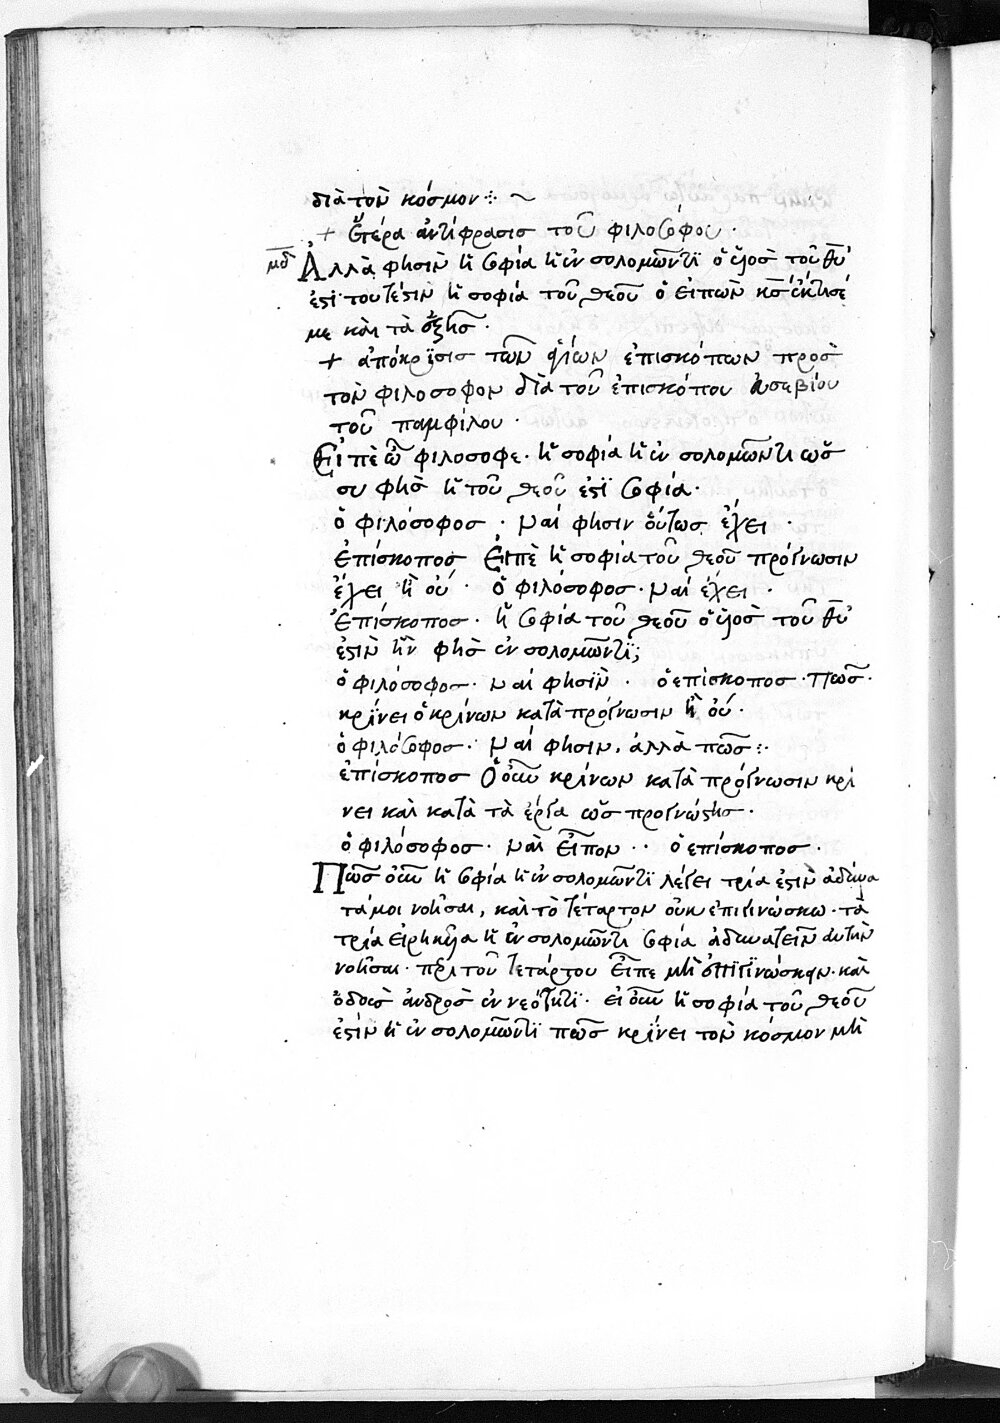 διὰ τὸν κόσμον ⁘ ~
+ ἑτέρα ἀντίφρασισ τοῦ φιλοσόφου ·
μδ Ἀλλὰ φησὶν ἡ σοφία ἡ ἐν σολομῶντι ὁ υἱὸσ τοῦ θῡ
ἐστὶ· τουτέστιν ἡ σοφία τοῦ θεοῦ ὁ εἰπὼν κ̅σ ἔκτισέ
με καὶ τὰ ἑξῆσ ·
+ ἀπόκρισισ τῶν ἁγίων ἐπισκόπων πρὸσ
τὸν φιλοσοφον διὰ τοῦ ἐπισκόπου εὐσεβίου
τοῦ παμφίλου ·
Εἰπὲ ὦ φιλοσοφε · ἡ σοφία ἡ ἐν σολομῶντι ὡσ
συ φῂσ ἡ τοῦ θεοῦ ἐστὶ σοφία ·
ὁ φιλόσοφοσ · ναί φησιν οὕτωσ ἔχει ·
ἐπίσκοποσ Εἰπὲ ἡ σοφία τοῦ θεοῦ πρόγνωσιν
ἔχει ἢ οὐ · ὁ φιλόσοφοσ · ναί ἔχει ·
ἐπίσκοποσ · ἡ σοφία τοῦ θεοῦ ὁ υἱὸσ τοῦ θῡ
ἐστὶν ἣν φῂσ ἐν σολομῶντι;
ὁ φιλόσοφοσ · ναί φησὶν · ὁ ἐπίσκοποσ · πῶσ ·
κρίνει ὁ κρίνων κατὰ πρόγνωσιν ἢ οὐ ·
ὁ φιλόσοφοσ · ναί φησιν, ἀλλὰ πῶσ :·
ἐπίσκοποσ Ὁ οὖν κρίνων κατὰ πρόγνωσιν κρί
νει καὶ κατὰ τὰ ἔργα ὡσ προγνώστησ ·
ὁ φιλόσοφοσ · ναὶ εἶπον ·· ὁ ἐπίσκοποσ ·
Πῶσ οὖν ἡ σοφία ἡ ἐν σολομῶντι λέγει τρία ἐστὶν ἀδύνα
τά μοι νοῆσαι, καὶ τὸ τέταρτον οὐκ ἐπιγινώσκω · τὰ
τρία εἰρηκυῖα ἡ ἐν σολομῶντι σοφία ἀδυνατεῖν αὐτὴν
νοῆσαι · περὶ τοῦ τετάρτου εἶπε μὴ ἐπιγινώσκειν · καὶ
ὁδοὺσ ἀνδρὸσ ἐν νεότητι · εἰ οὖν ἡ σοφία τοῦ θεοῦ
ἐστίν ἡ ἐν σολομῶντι πῶσ κρίνει τὸν κόσμον μὴ